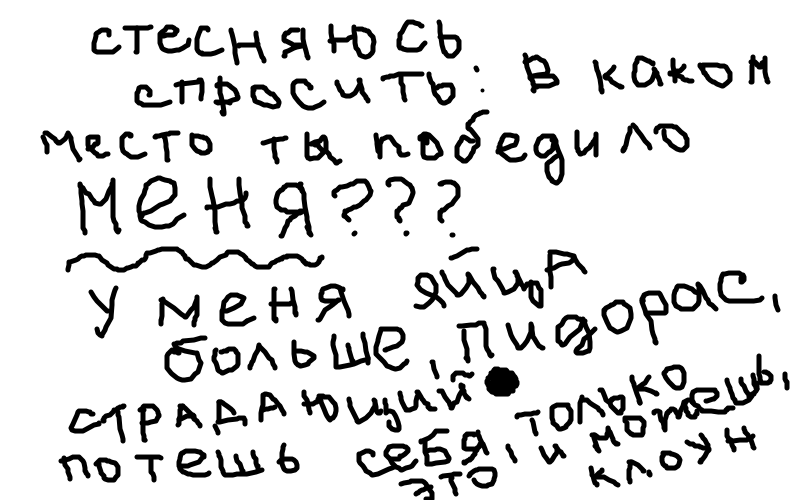 стесняюсь
спросить: в каком
место ты победило
меня???
у меня яйца
больше, пидорас,
страдающий
потешь себя, только
это и можешь,
клоун